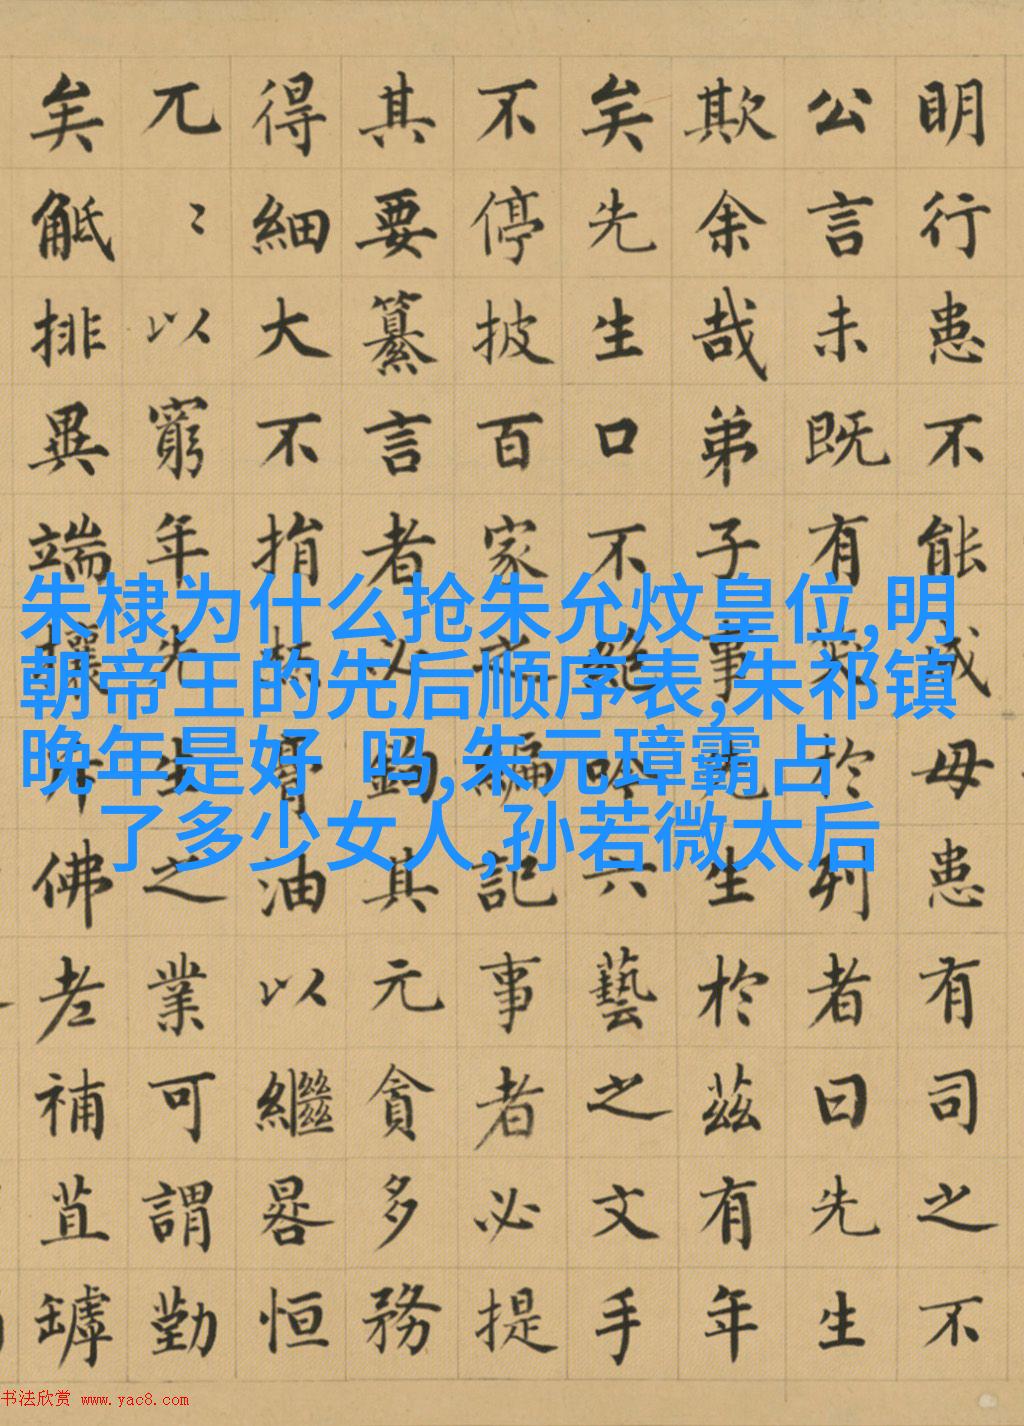 明行患不能成毋患有司之不
公言未既有笑於列者曰先生
欺余哉弟子事先生於茲有年
矣先生口不絶吟六藝之文手
不停披百家之編記事者必提
其要纂言者必鈎其元貪多務
得細大不捐焚膏油以繼晷恒
兀〻以窮年先生之業可謂勤
矣觝排異端攘斥佛老補苴罅
朱棣为什么抢朱允炆皇位,明
朝帝王的先后顺序表,朱祁镇
晚年是好 吗,朱元璋霸占
了多少女人,孙若微太后
书法欣赏 www.yac8.com